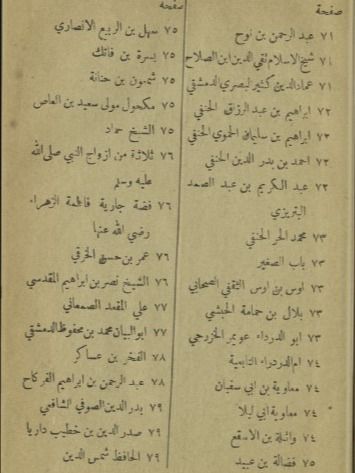 صفحة
٧١ عبد الرحمن بن نوح
٧١ شيخ الاسلام تقي الدين ابن الصلاح
٧١ عماد الدين كثير البصري الدمشقي
٧٢ ابراهيم بن عبد الرزاق الحنفي
٧٢ ابراهيم بن سليمان الحموي الحنفي
٧٢ احمد بن بدر الدين الحنفي
٧٢ عبد الكريم بن عبد الصمد
التبريزي
٧٣ محمد الحر الحنفي
٧٣ باب الصغير
٧٣ اوس بن اوس الثقفي الصحابي
٧٣ بلال بن حمامة الحبشي
٧٣ ابو الدرداء عويمر الخزرجي
٧٤ ام الدرداء التابعية
٧٤ معاوية بن ابي سفيان
٧٤ معاوية ابي ليلا
٧٤ واثلة بن الاسقع
٧٥ فضالة بن عبيد
صفحة
٧٥ سهل بن الربيع الانصاري
٧٥ بسرة بن فاتك
٧٥ شمعون بن حنانة
٧٥ مكحول مولى سعيد بن العاص
٧٥ الشيخ حماد
٧٦ ثلاثة من ازواج النبي صلى الله
عليه وسلم
٧٦ فضة جارية فاطمة الزهراء
رضي الله عنها
٧٦ عمر بن حسين الخرقي
٧٦ الشيخ نصر بن ابراهيم المقدسي
٧٧ علي المقعد الصمعاني
٧٧ ابو البيان محمد بن محفوظ الدمشقي
٧٨ الفخر بن عساكر
٧٨ عبد الرحمن بن ابراهيم الفركاح
٧٩ بدر الدين الصوفي الشافعي
٧٩ صدر الدين بن خطيب داريا
٧٩ الحافظ شمس الدين